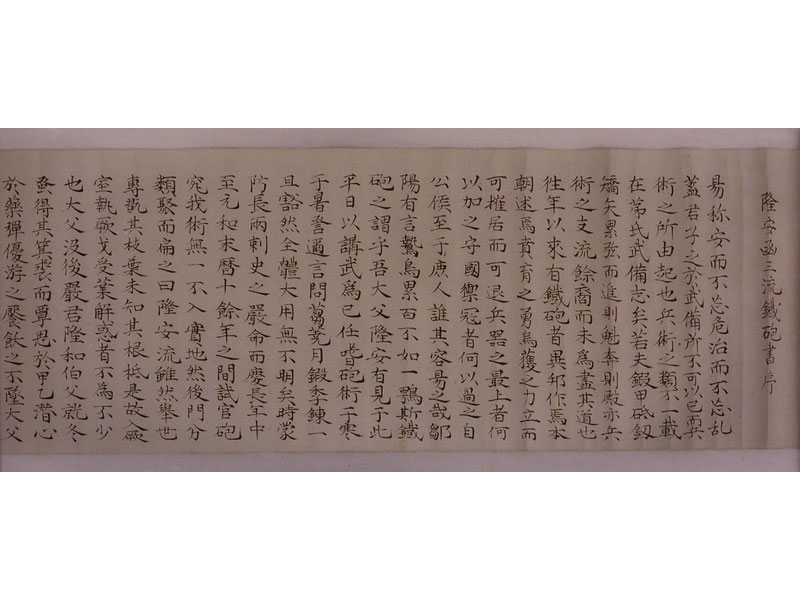 隆安函三流鐵砲書序
易称安而不忘危治而不忘乱
蓋君子之於武備所不可以已而兵
術之所由起也兵術之類不一載
在茅氏武備志矣若夫鍛甲砥釼
矯矢累弦而進則魁奔則殿亦兵
術之支流餘裔而未為盡其道也
徃年以來有鐵砲者異邦作焉本
朝述焉賁育之勇烏獲之力立而
可摧居而可退兵器之最上者何
以加之守國禦冠者何以過之自
公侯至于庶人誰其容易之哉鄒
陽有言鷙鳥累百不如一鶚斯鐵
砲之謂乎吾大父隆安有見于此
平日以講武為己任嗜砲術于寒
于暑詧邇言問蒭蕘月鍛季錬一
旦豁然全體大用無不明矣時蒙
防長兩刺史之嚴命而慶長年中
至元和末暦十餘年之間試官砲
究我術無一不入實地然後門分
類聚而扁之曰隆安流雖然擧世
專翫其枝葉未知其根柢是故入
室執厥戈受業解惑者不為不少
也大父没後嚴君隆和伯父就冬
蚤得其箕裘而覃思於甲乙潛心
於藥彈優游之饜飫之不墜大父